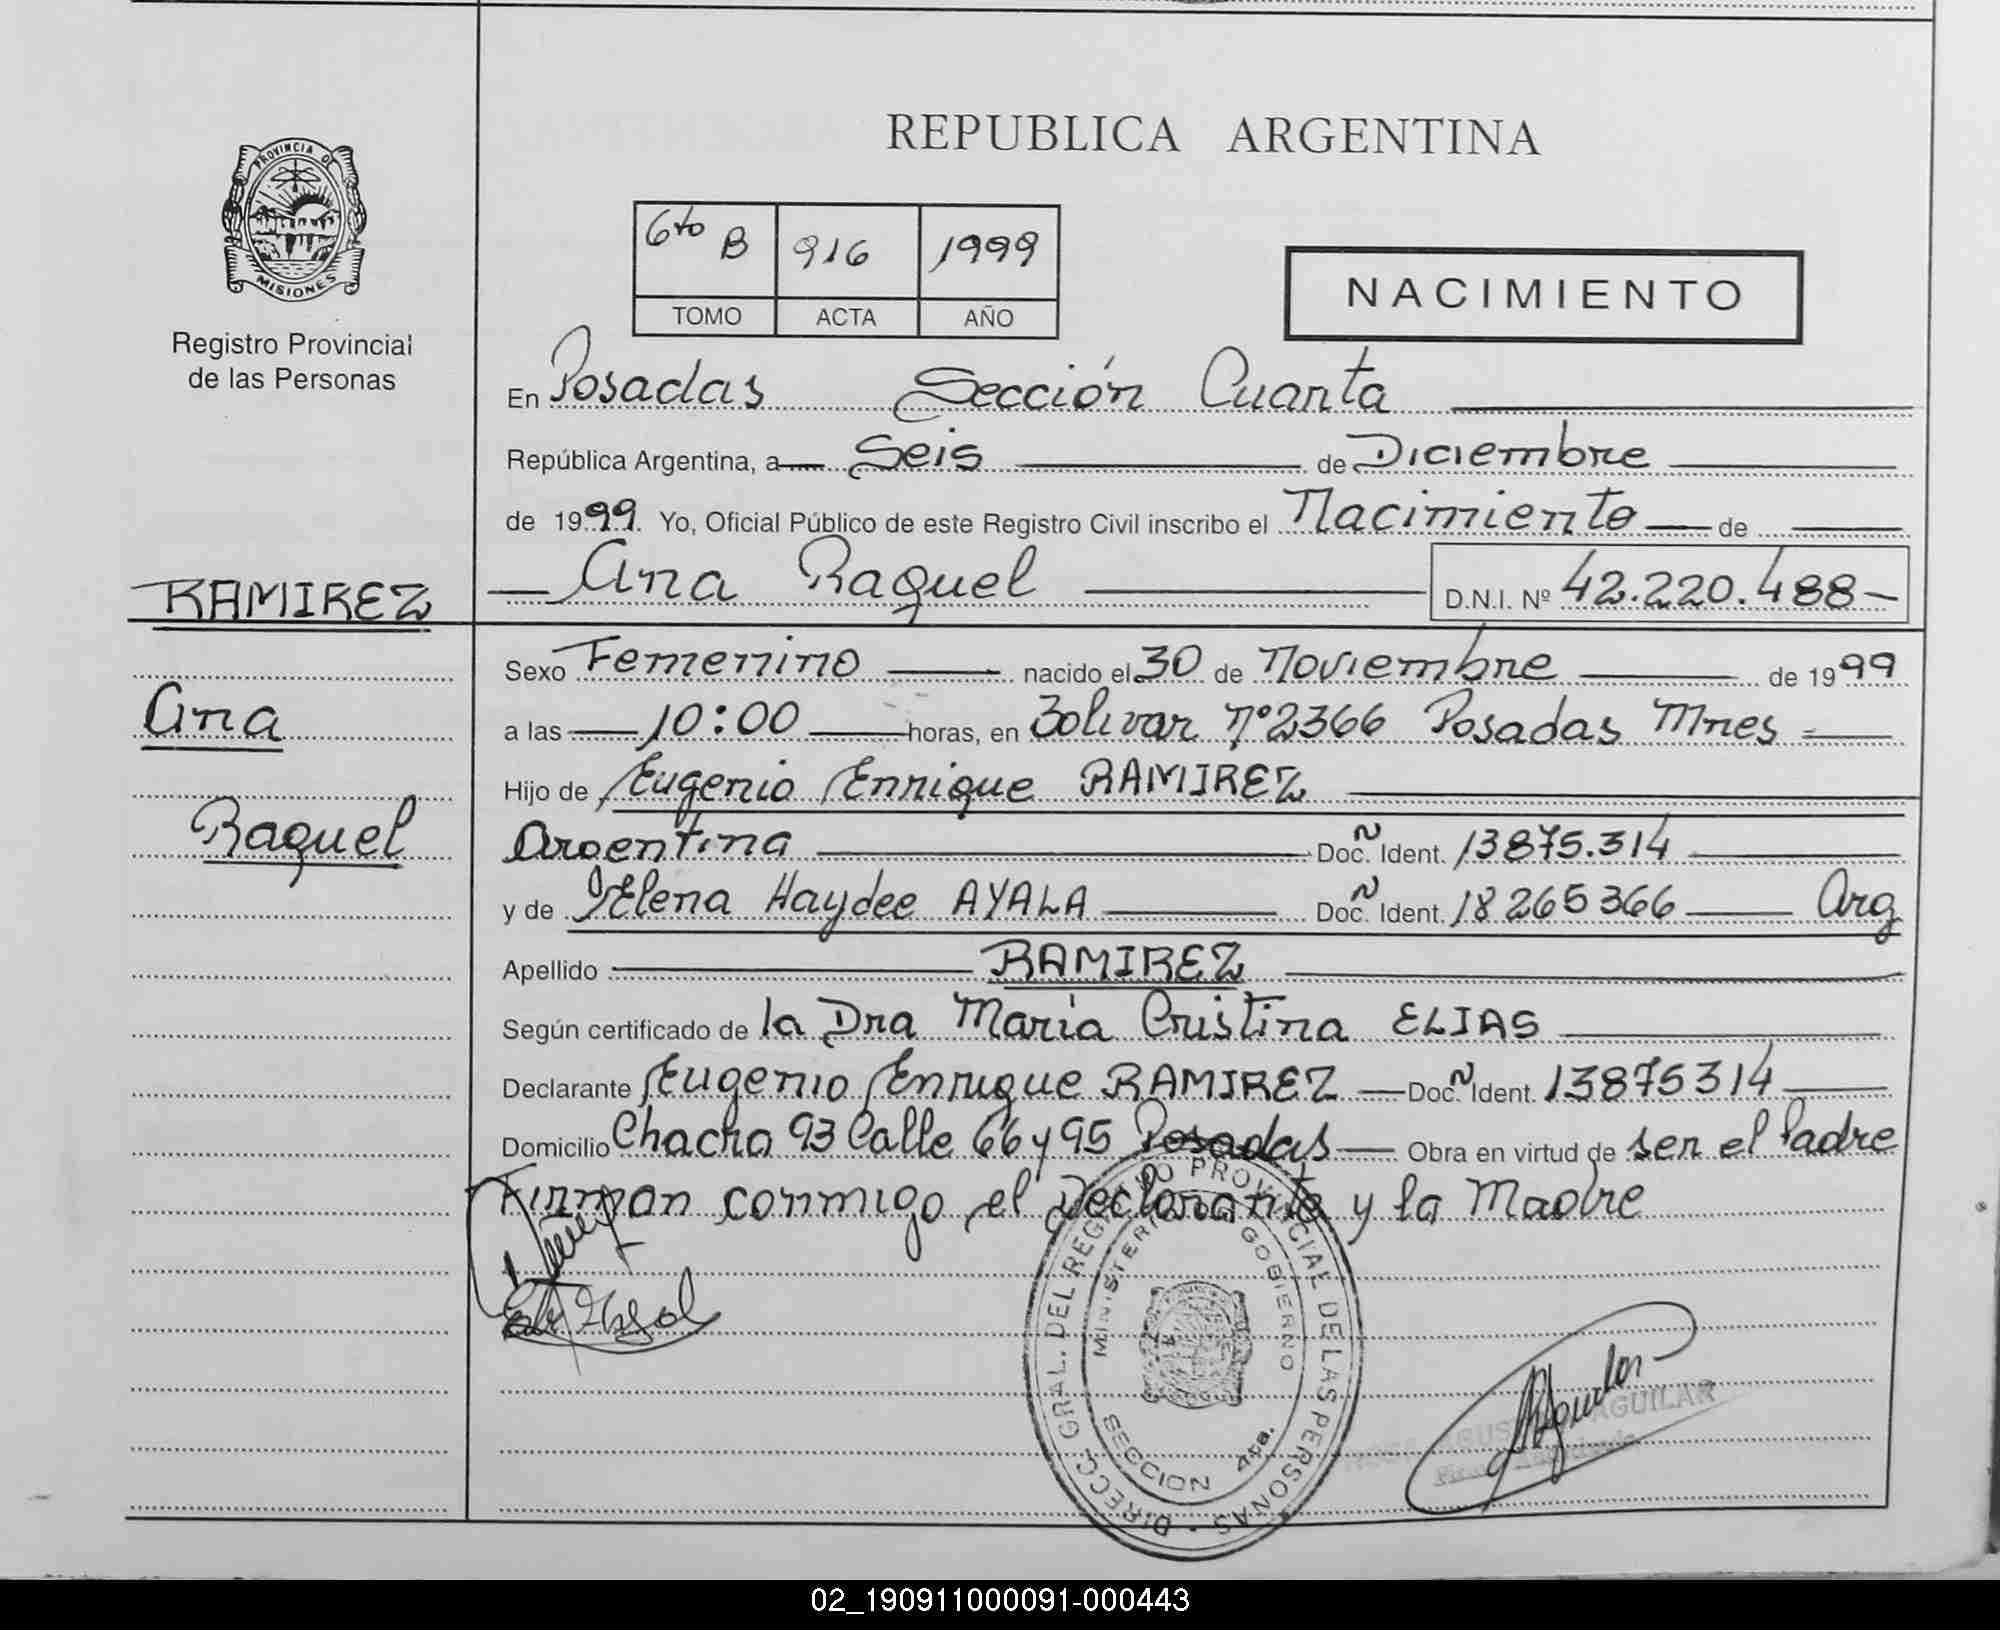 REPUBLICA ARGENTINA
PROVINCIA DE
MISIONES
Registro Provincial
de las Personas
6to B 916 1999
TOMO ACTA AÑO
NACIMIENTO
En Posadas Sección Cuarta
República Argentina, a Seis de Diciembre
de 1999. Yo, Oficial Público de este Registro Civil inscribo el Nacimiento de
Ana Raquel D.N.I. Nº 42.220.488
RAMIREZ
Ana
Raquel
Sexo Femenino nacido el 30 de Noviembre de 1999
a las 10:00 horas, en Bolivar nº 2366 Posadas Mnes
Hijo de Eugenio Enrique RAMIREZ
Argentina Doc. Ident. 13875.314
y de Elena Haydee AYALA Doc. Ident. 18265366 Arg
Apellido RAMIREZ
Según certificado de la Dra Maria Cristina ELIAS
Declarante Eugenio Enrique RAMIREZ Doc. Ident. 13875314
Domicilio Chacra 93 Calle 66 y 95 Posadas Obra en virtud de ser el Padre
Firman conmigo el Declarante y la Madre
DIRECC. GRAL. DEL REGISTRO PROVINCIAL DE LAS PERSONAS
MINISTERIO DE GOBIERNO
SECCION 4ta.
AGUILAR
02_190911000091-000443